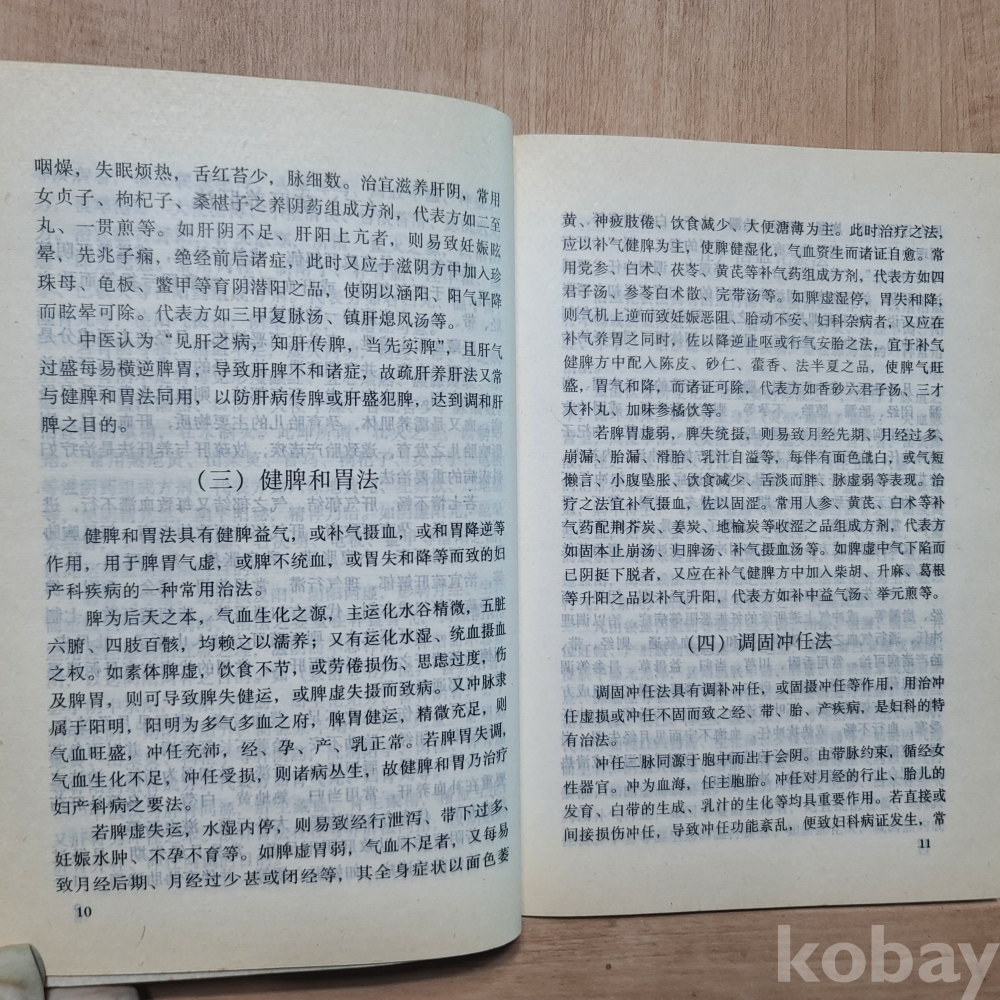 咽燥，失眠烦热，舌红苔少，脉细数。治宜滋养肝阴，常用
女贞子、枸杞子、桑椹子之养阴药组成方剂，代表方如二至
丸、一贯煎等。如肝阴不足、肝阳上亢者，则易致妊娠眩
晕、先兆子痫，绝经前后诸症，此时又应于滋阴方中加入珍
珠母、龟板、鳖甲等育阴潜阳之品，使阴以涵阳、阳气平降
而眩晕可除。代表方如三甲复脉汤、镇肝熄风汤等。
中医认为“见肝之病，知肝传脾，当先实脾”，且肝气
过盛每易横逆脾胃，导致肝脾不和诸症，故疏肝养肝法又常
与健脾和胃法同用，以防肝病传脾或肝盛犯脾，达到调和肝
脾之目的。
（三）健脾和胃法
健脾和胃法具有健脾益气，或补气摄血，或和胃降逆等
作用，用于脾胃气虚，或脾不统血，或胃失和降等而致的妇
产科疾病的一种常用治法。
脾为后天之本，气血生化之源，主运化水谷精微，五脏
六腑、四肢百骸，均赖之以濡养；又有运化水湿、统血摄血
之权。如素体脾虚，饮食不节，或劳倦损伤、思虑过度，伤
及脾胃，则可导致脾失健运，或脾虚失摄而致病。又冲脉隶
属于阳明，阳明为多气多血之府，脾胃健运，精微充足，则
气血旺盛，冲任充沛，经、孕、产、乳正常。若脾胃失调，
气血生化不足，冲任受损，则诸病丛生，故健脾和胃乃治疗
妇产科病之要法。
若脾虚失运，水湿内停，则易致经行泄泻、带下过多、
妊娠水肿、不孕不育等。如脾虚胃弱，气血不足者，又每易
致月经后期、月经过少甚或闭经等，其全身症状以面色萎
10
黄、神疲肢倦、饮食减少、大便溏薄为主。此时治疗之法，
应以补气健脾为主，使脾健湿化，气血资生而诸证自愈。常
用党参、白术、茯苓、黄芪等补气药组成方剂，代表方如四
君子汤、参苓白术散、完带汤等。如脾虚湿停，胃失和降，
则气机上逆而致妊娠恶阻、胎动不安、妇科杂病者，又应在
补气养胃之同时，佐以降逆止呕或行气安胎之法，宜于补气
健脾方中配入陈皮、砂仁、藿香、法半夏之品，使脾气旺
盛，胃气和降，而诸证可除，代表方如香砂六君子汤、三才
大补丸、加味参橘饮等。
若脾胃虚弱，脾失统摄，则易致月经先期、月经过多、
崩漏、胎漏、滑胎、乳汁自溢等，每伴有面色㿠白，或气短
懒言、小腹坠胀、饮食减少、舌淡而胖、脉虚弱等表现。治
疗之法宜补气摄血，佐以固涩。常用人参、黄芪、白术等补
气药配荆芥炭、姜炭、地榆炭等收涩之品组成方剂，代表方
如固本止崩汤、归脾汤、补气摄血汤等。如脾虚中气下陷而
已阴挺下脱者，又应在补气健脾方中加入柴胡、升麻、葛根
等升阳之品以补气升阳，代表方如补中益气汤、举元煎等。
（四）调固冲任法
调固冲任法具有调补冲任，或固摄冲任等作用，用治冲
任虚损或冲任不固而致之经、带、胎、产疾病，是妇科的特
有治法。
冲任二脉同源于胞中而出于会阴。由带脉约束，循经女
性器官。冲为血海，任主胞胎。冲任对月经的行止、胎儿的
发育、白带的生成、乳汁的生化等均具重要作用。若直接或
间接损伤冲任，导致冲任功能紊乱，便致妇科病证发生，常
11
kobay